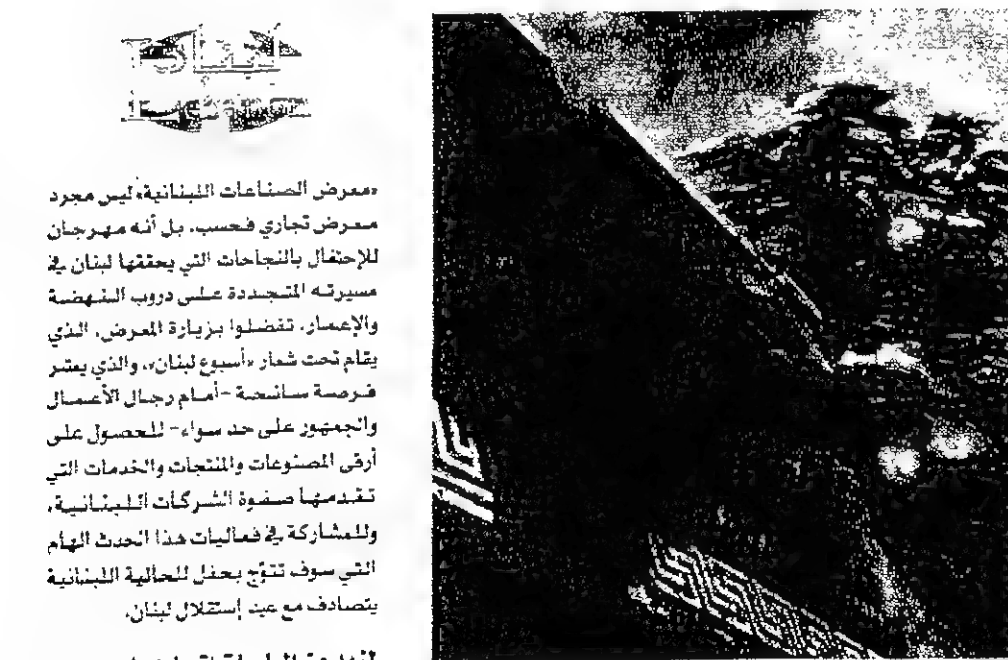 «معرض الصناعات اللبنانية» ليس مجرد
معرض تجاري فحسب، بل أنه مهرجان
للإحتفال بالنجاحات التي يحققها لبنان في
مسيرته المتجددة على دروب النهضة
والإعمار. تفضلوا بزيارة المعرض، الذي
يقام تحت شعار «أسبوع لبنان»، والذي يعتبر
فرصة سانحة -أمام رجال الأعمال
والجمهور على حد سواء- للحصول على
أرقى المصنوعات والمنتجات والخدمات التي
تقدمها صفوة الشركات اللبنانية،
وللمشاركة في فعاليات هذا الحدث الهام
التي سوف تتوّج بحفل للجالية اللبنانية
يتصادف مع عيد إستقلال لبنان.